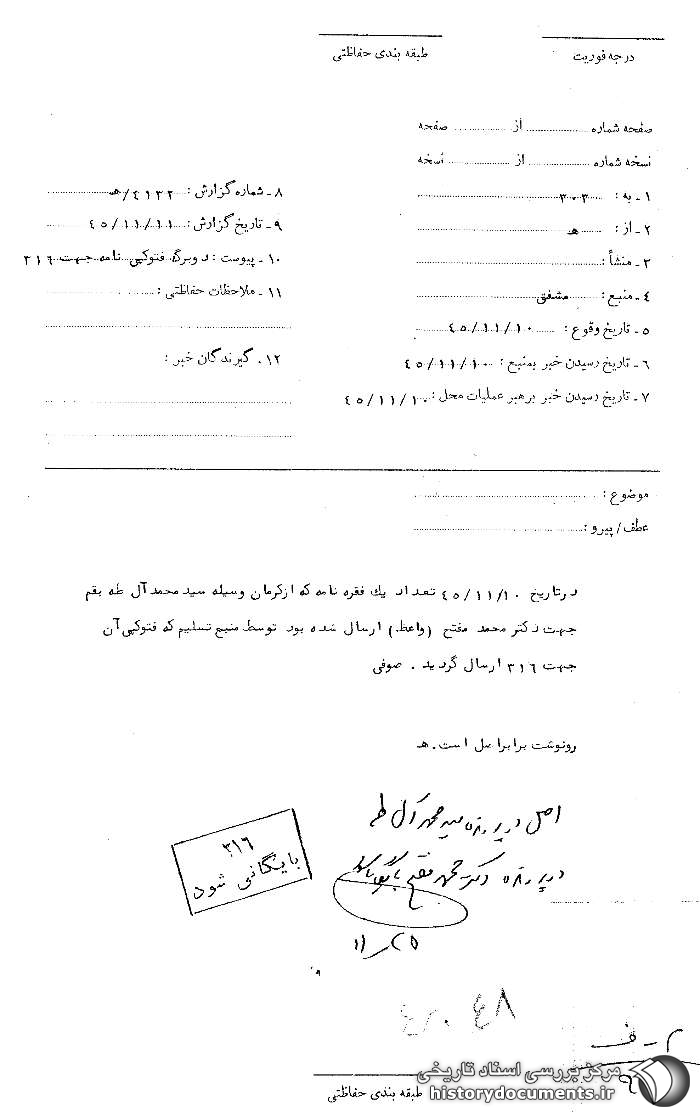 درجه فوریت
طبقه بندی حفاظتی
صفحه شماره .......... از .......... صفحه
نسخه شماره .......... از .......... نسخه
۱ - به : ۳۰۳
۲ - از : ه‍
۳ - منشأ :
۴ - منبع : مشفق
۵ - تاریخ وقوع : ۴۵/۱۱/۱۰
۶ - تاریخ رسیدن خبر بمنبع : ۴۵/۱۱/۱۰
۷ - تاریخ رسیدن خبر برهبر عملیات محل : ۴۵/۱۱/۱۰
۸ - شماره گزارش : ۴۱۲۲/ه‍
۹ - تاریخ گزارش : ۴۵/۱۱/۱۱
۱۰ - پیوست : دوبرگ فتوکپی نامه جهت ۳۱۶
۱۱ - ملاحظات حفاظتی :
۱۲ . گیرندگان خبر :
موضوع :
عطف/ پیرو :
درتاریخ ۴۵/۱۱/۱۰ تعداد یك فقره نامه که ازکرمان وسیله سید محمد آل طه بقم
جهت دکتر محمد مفتح (واعظ) ارسال شده بود توسط منبع تسلیم که فتوکپی آن
جهت ۳۱۶ ارسال گردید . صوفی
رونوشت برابر اصل است . ه‍
اصل در پرونده سید محمد آل طه
در پرونده دکتر محمد مفتح
۳۱۶
بایگانی شود
۴۸
م - ف
۹
طبقه بندی حفاظتی
مرکز بررسی اسناد تاریخی
historydocuments.ir